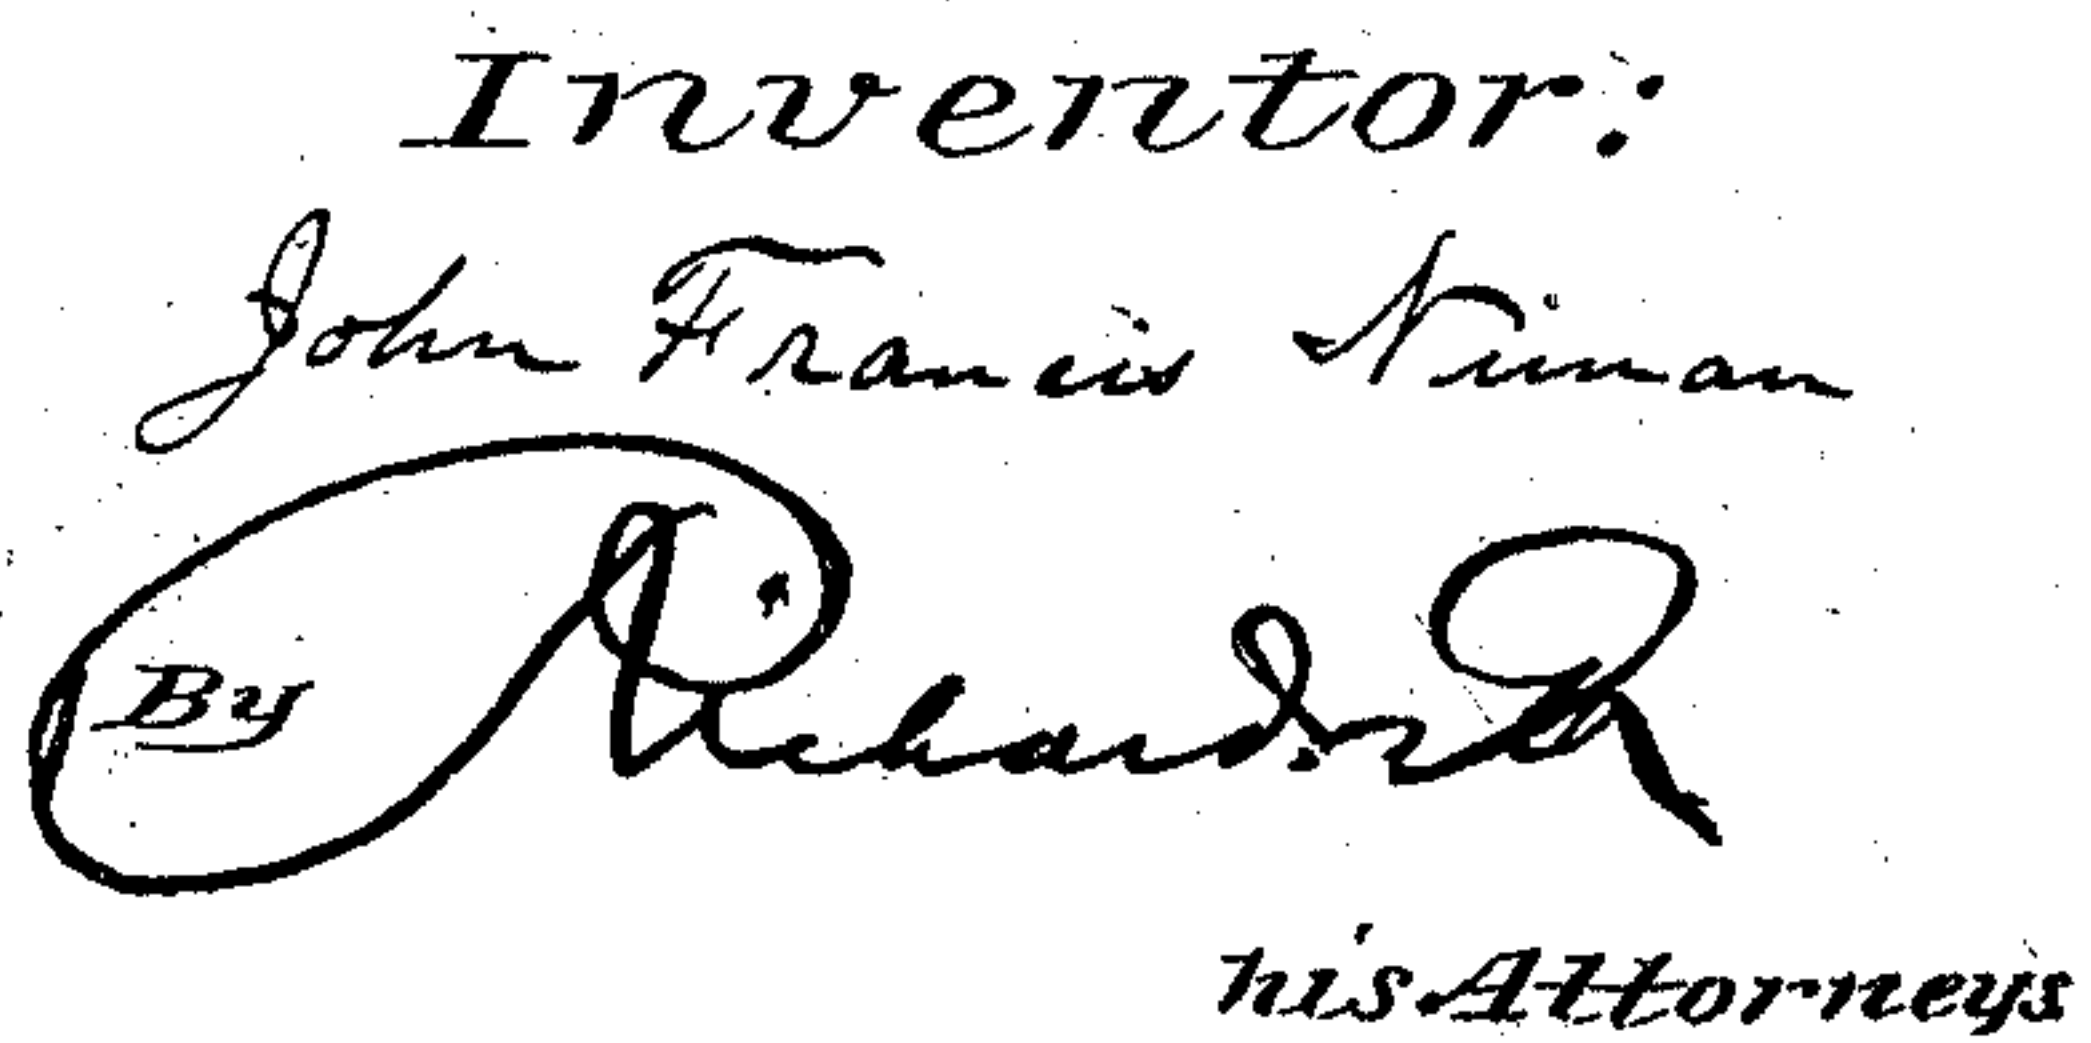 Inventor:
John Francis Niman
By Richards & Co
his Attorneys